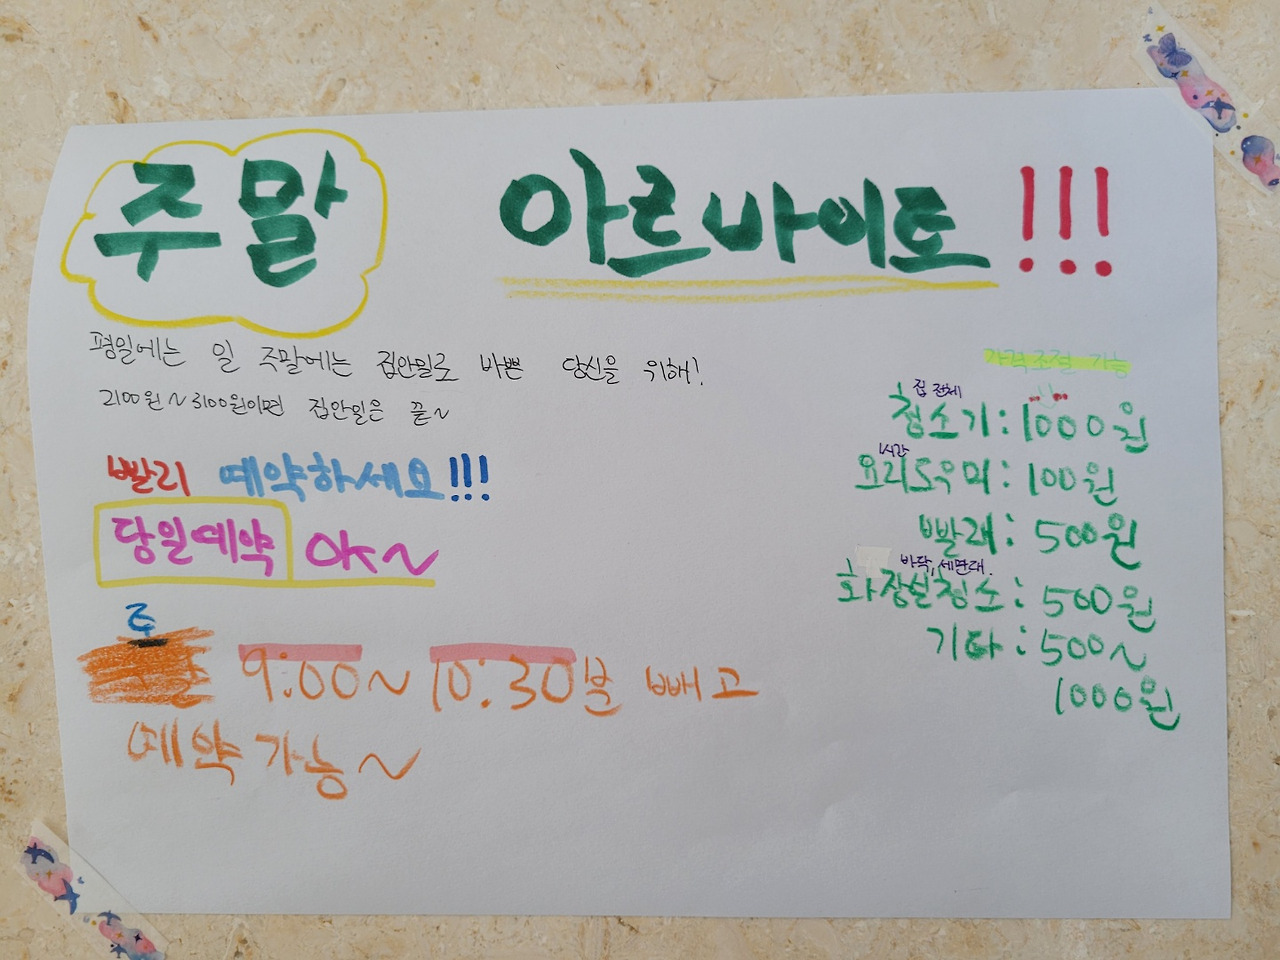 주말 아르바이토!!!
평일에는 일 주말에는 집안일로 바쁜 당신을 위해!
2100원~3100원이면 집안일은 끝~
빨리 예약하세요!!!
당일예약 OK~
주
9:00~10:30분 빼고
예약가능~
가격조절 가능
집 전체
청소기:1000원
1시간
요리도우미:100원
빨래:500원
바닥, 세면대.
화장실청소:500원
기타:500~
1000원